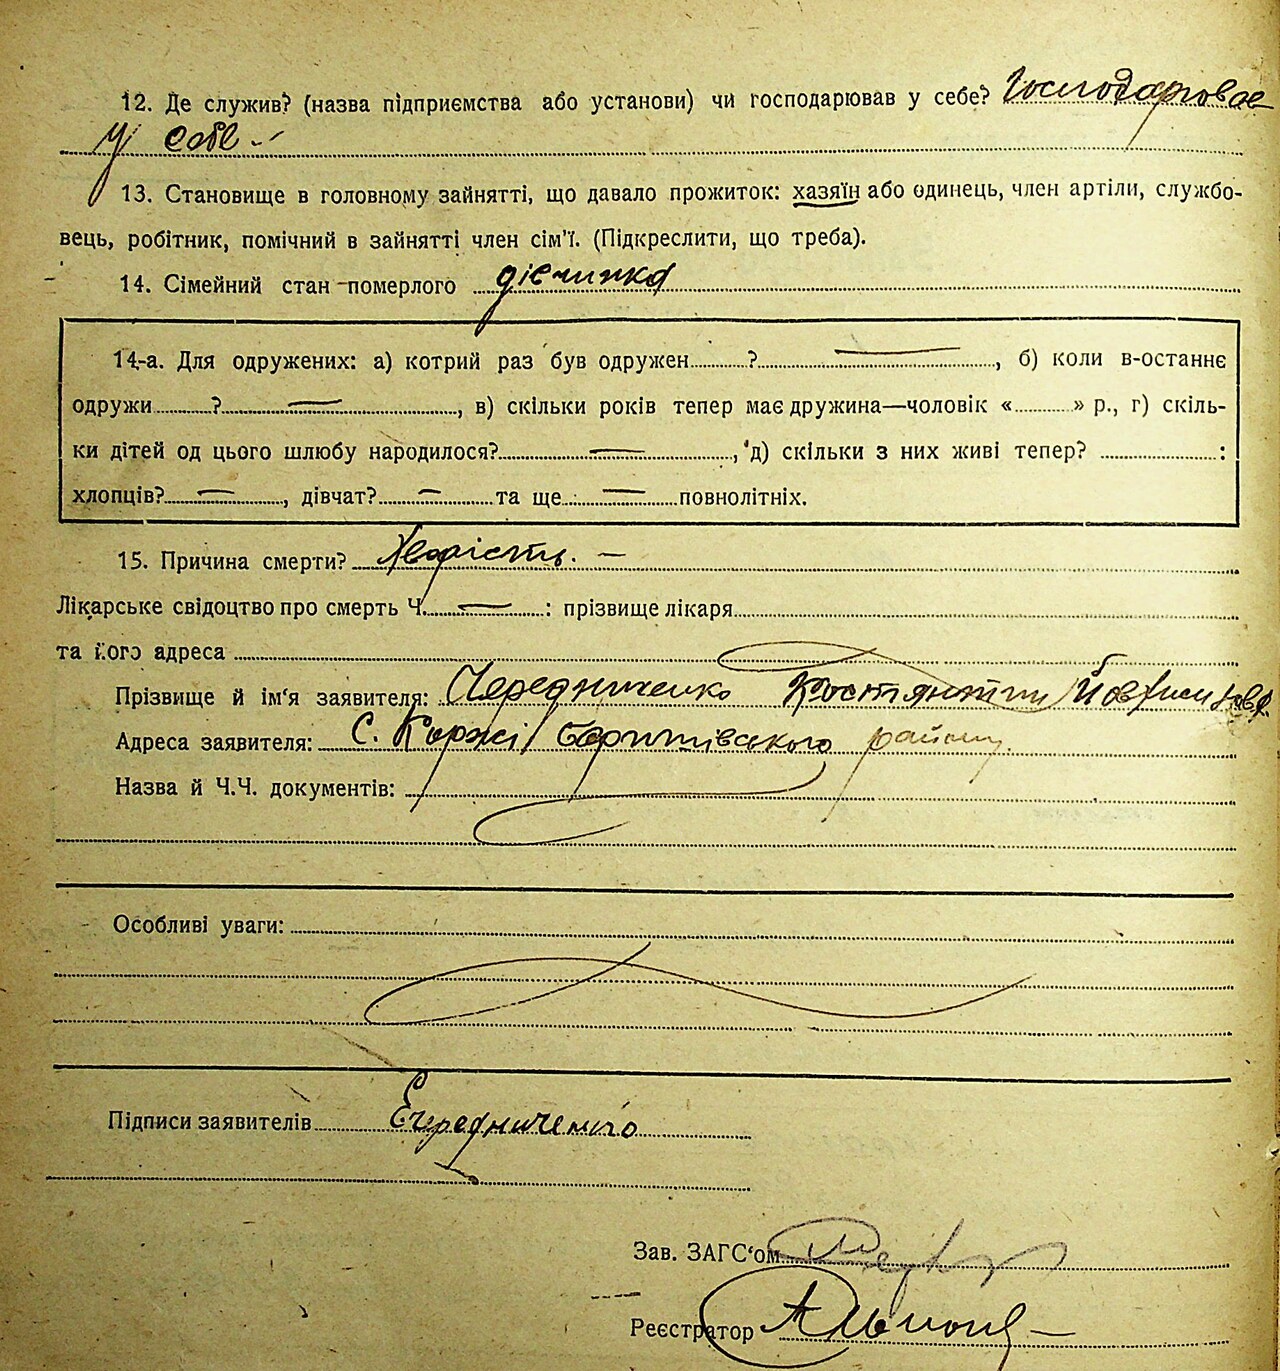 12. Де служив? (назва підприємства або установи) чи господарював у себе? Господарював
у себе
13. Становище в головному зайнятті, що давало прожиток: хазяїн або одинець, член артіли, службо-
вець, робітник, помічний в зайнятті член сім'ї. (Підкреслити, що треба).
14. Сімейний стан померлого дівчинка
14-а. Для одружених: а) котрий раз був одружен ? —, б) коли в-останнє
одружи ? —, в) скільки років тепер має дружина—чоловік « » р., г) скіль-
ки дітей од цього шлюбу народилося? —, д) скільки з них живі тепер? :
хлопців? —, дівчат? — та ще — повнолітніх.
15. Причина смерти? Хворість. —
Лікарське свідоцтво про смерть Ч. — : прізвище лікаря
та його адреса
Прізвище й ім'я заявителя: Чередниченко Костянтин
Адреса заявителя: С. Коржі Баришівського району
Назва й Ч.Ч. документів:
Особливі уваги:
Підписи заявителів
Зав. ЗАГС'ом
Реєстратор